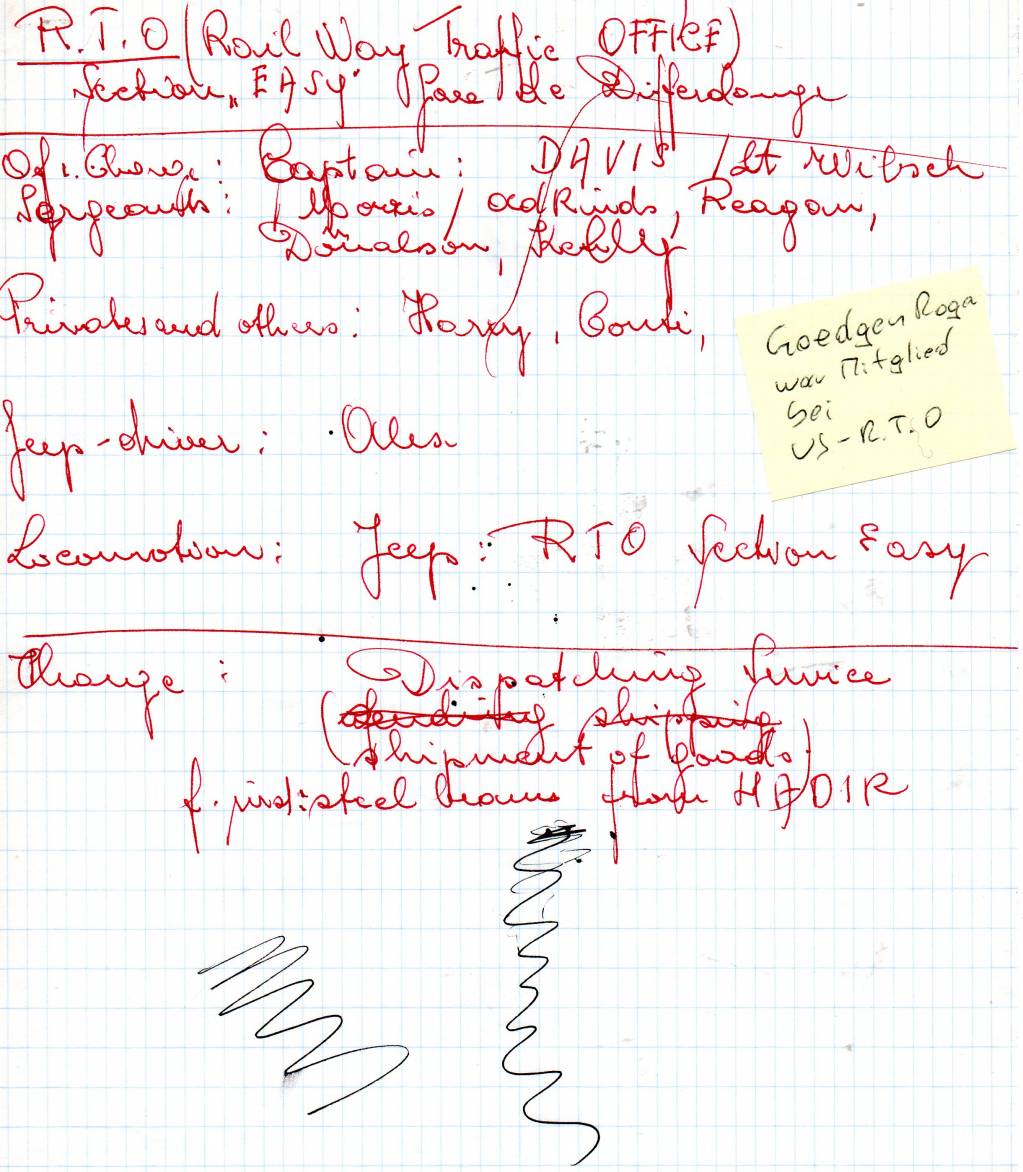 R.T.O (Rail Way Traffic OFFICE)
Section „EASY" Gare de Differdange
Captain: DAVIS / Lt
Sergeants: Morris / Reagan,
Donalson,
Privates and others: Harry, Conti,
Jeep-driver:
Locomotion: Jeep: RTO Section Easy
Charge: Dispatching Service
(sending shipping
shipment of goods)
f. inst: steel beams from HADIR
Goedgen Roga
war Mitglied
bei
US-R.T.O